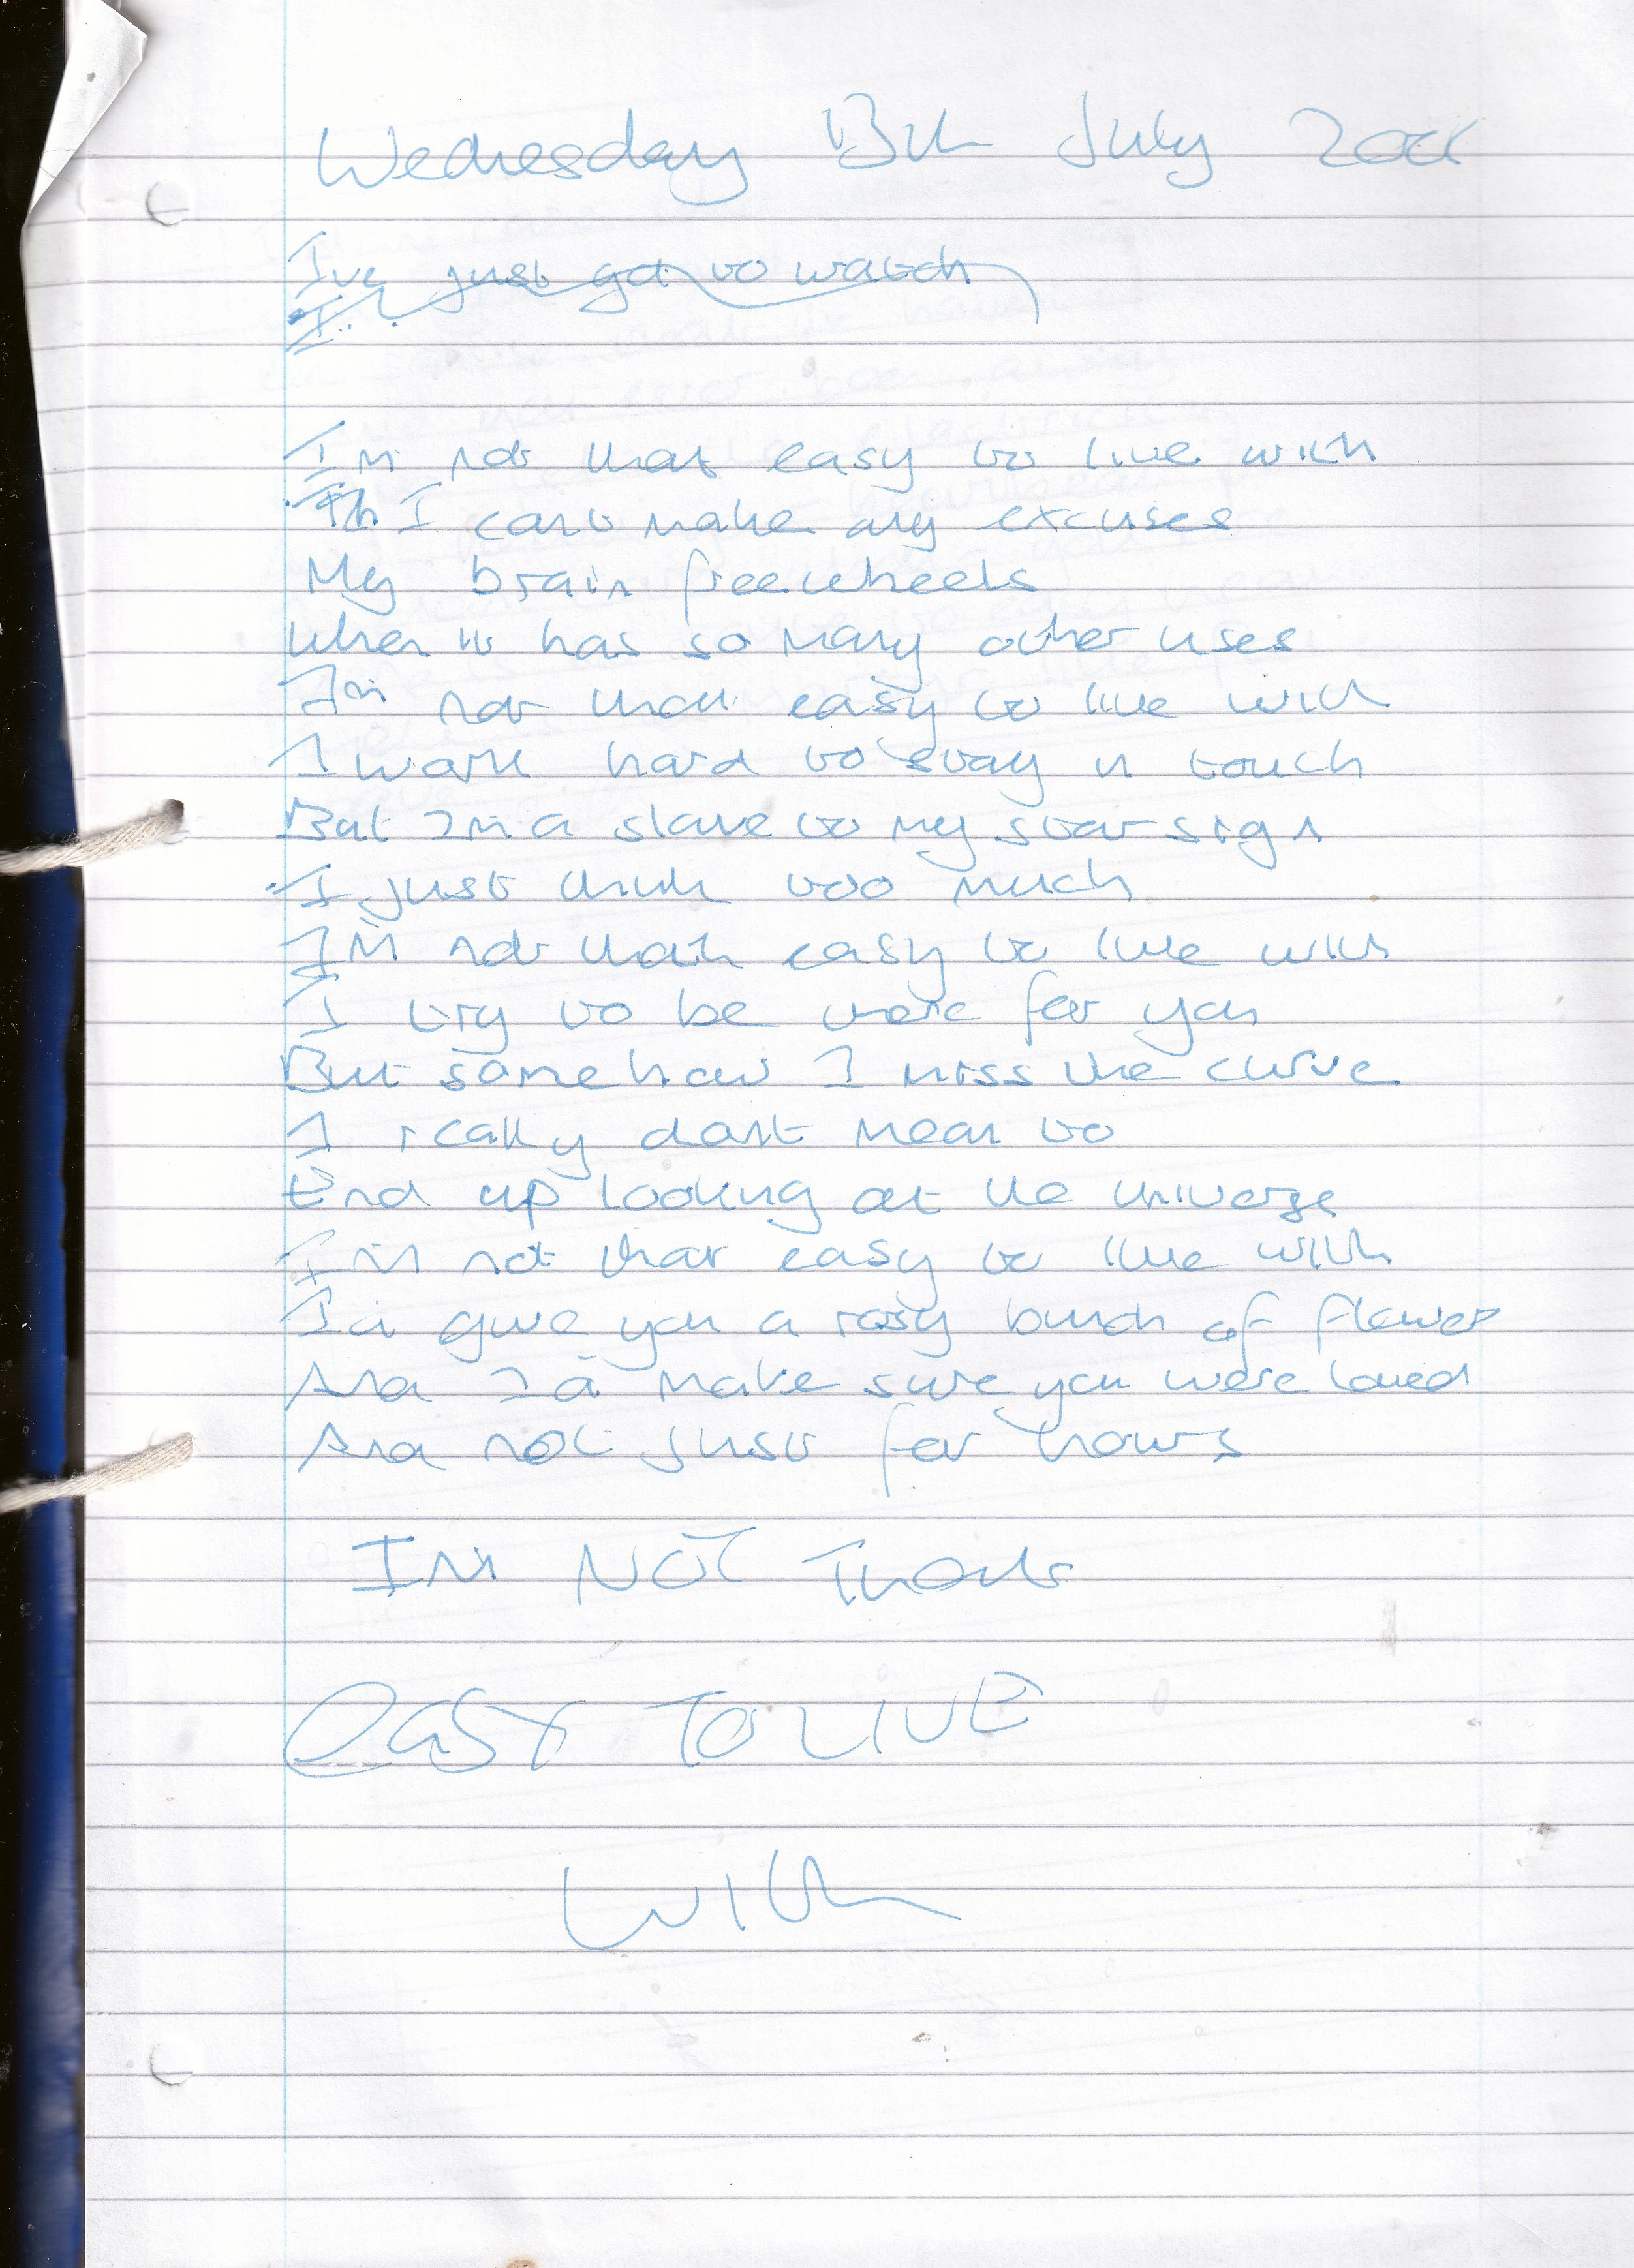 Wednesday 13th July
Ive just got to watch
I
Im not that easy to live with
Th I cant make any excuses
My brain freewheels
When it has so many other uses
Im not that easy to live with
I work hard to stay in touch
But Im a slave to my star sign
I just think too much
Im not that easy to live with
I try to be there for you
But somehow I miss the curve
I really dont mean to
End up looking at the universe
Im not that easy to live with
Id give you a rosy bunch of flowers
And Id make sure you were loved
And not just for hours
IM NOT That
EASY TO LIVE
With